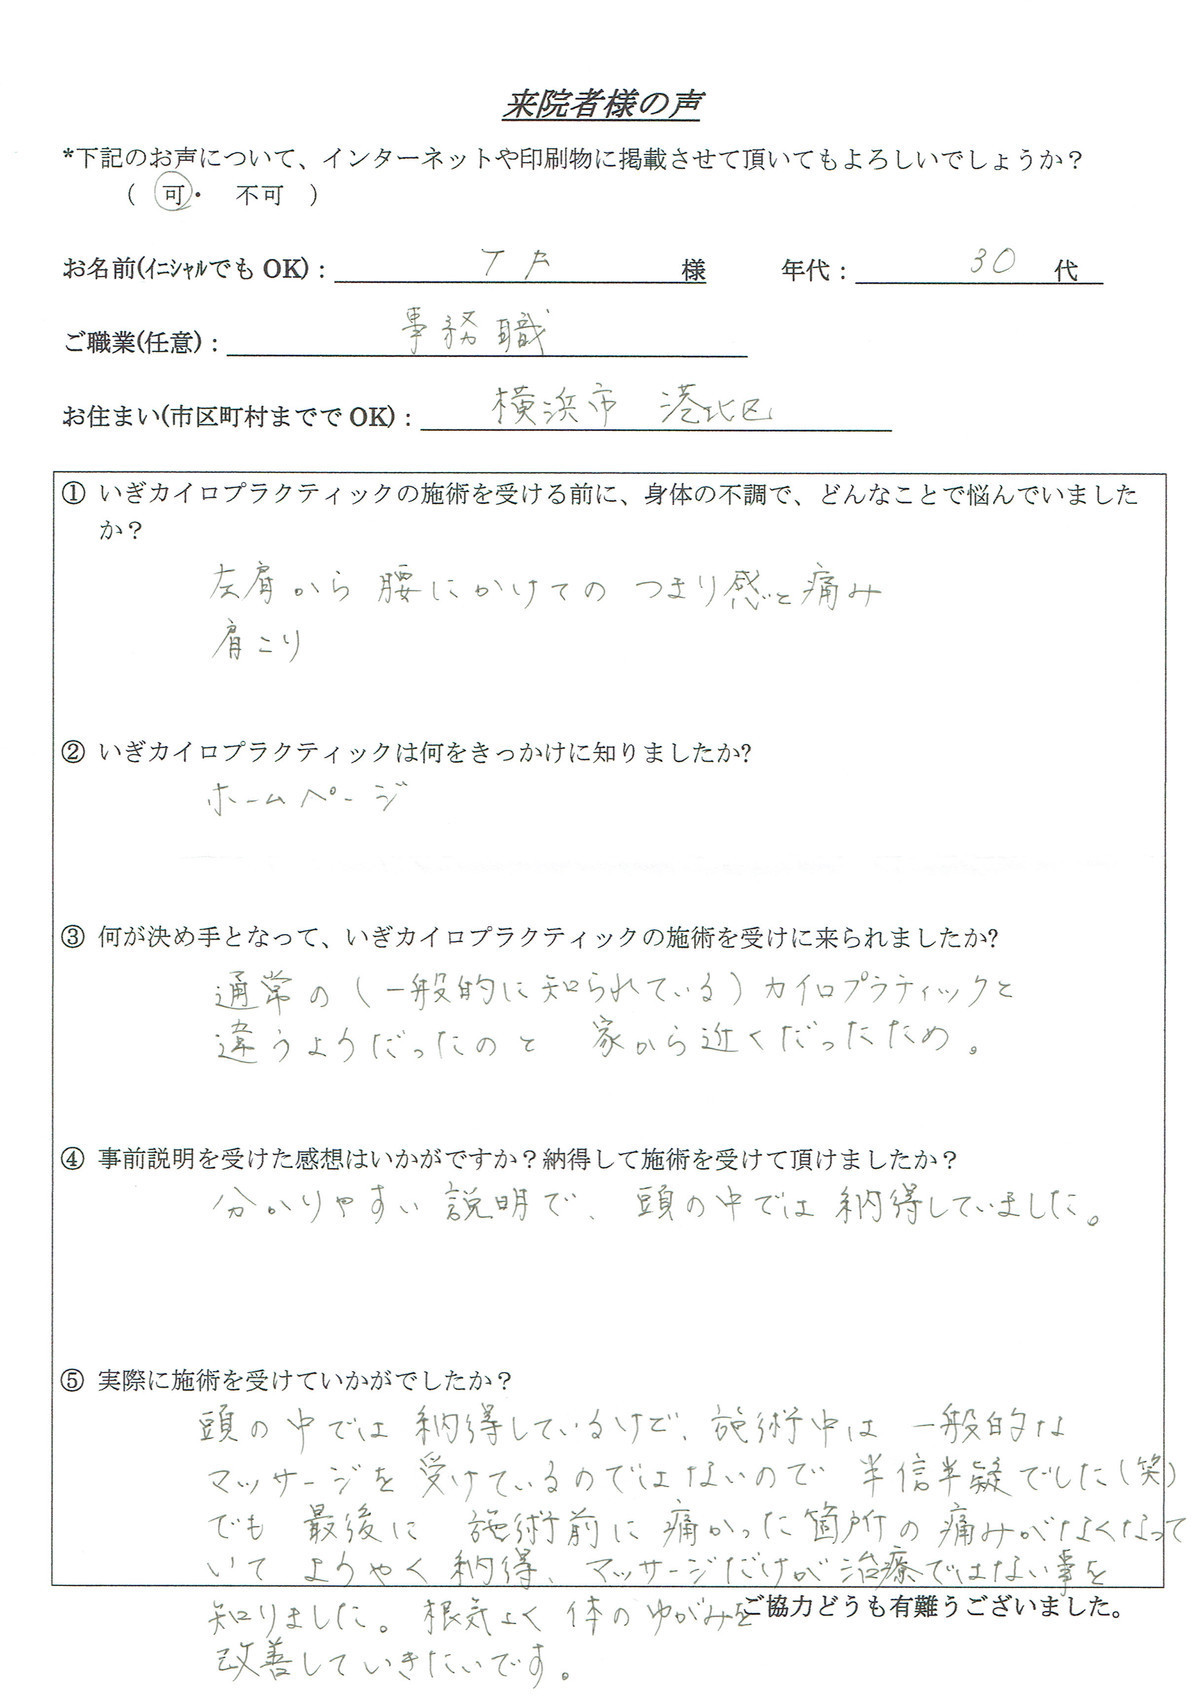 来院者様の声
*下記のお声について、インターネットや印刷物に掲載させて頂いてもよろしいでしょうか？
( 可・ 不可 )
お名前(ｲﾆｼｬﾙでも OK)： 様 年代： 30 代
ご職業(任意)： 事務職
お住まい(市区町村までで OK)： 横浜市 港北区
① いぎカイロプラクティックの施術を受ける前に、身体の不調で、どんなことで悩んでいました
か？
左肩から 腰にかけての つまり感と痛み
肩こり
② いぎカイロプラクティックは何をきっかけに知りましたか?
ホームページ
③ 何が決め手となって、いぎカイロプラクティックの施術を受けに来られましたか?
通常の（一般的に知られている）カイロプラティックと
違うようだったのと 家から近くだったため。
④ 事前説明を受けた感想はいかがですか？納得して施術を受けて頂けましたか？
分かりやすい説明で、頭の中では納得していました。
⑤ 実際に施術を受けていかがでしたか？
頭の中では 納得しているけど、施術中は 一般的な
マッサージを 受けているのではないので 半信半疑でした（笑）
でも 最後に 施術前に 痛かった箇所の 痛みがなくなって
いて ようやく 納得、マッサージだけが治療ではない事を
ご協力どうも有難うございました。
知りました。根気よく 体のゆがみを
改善していきたいです。